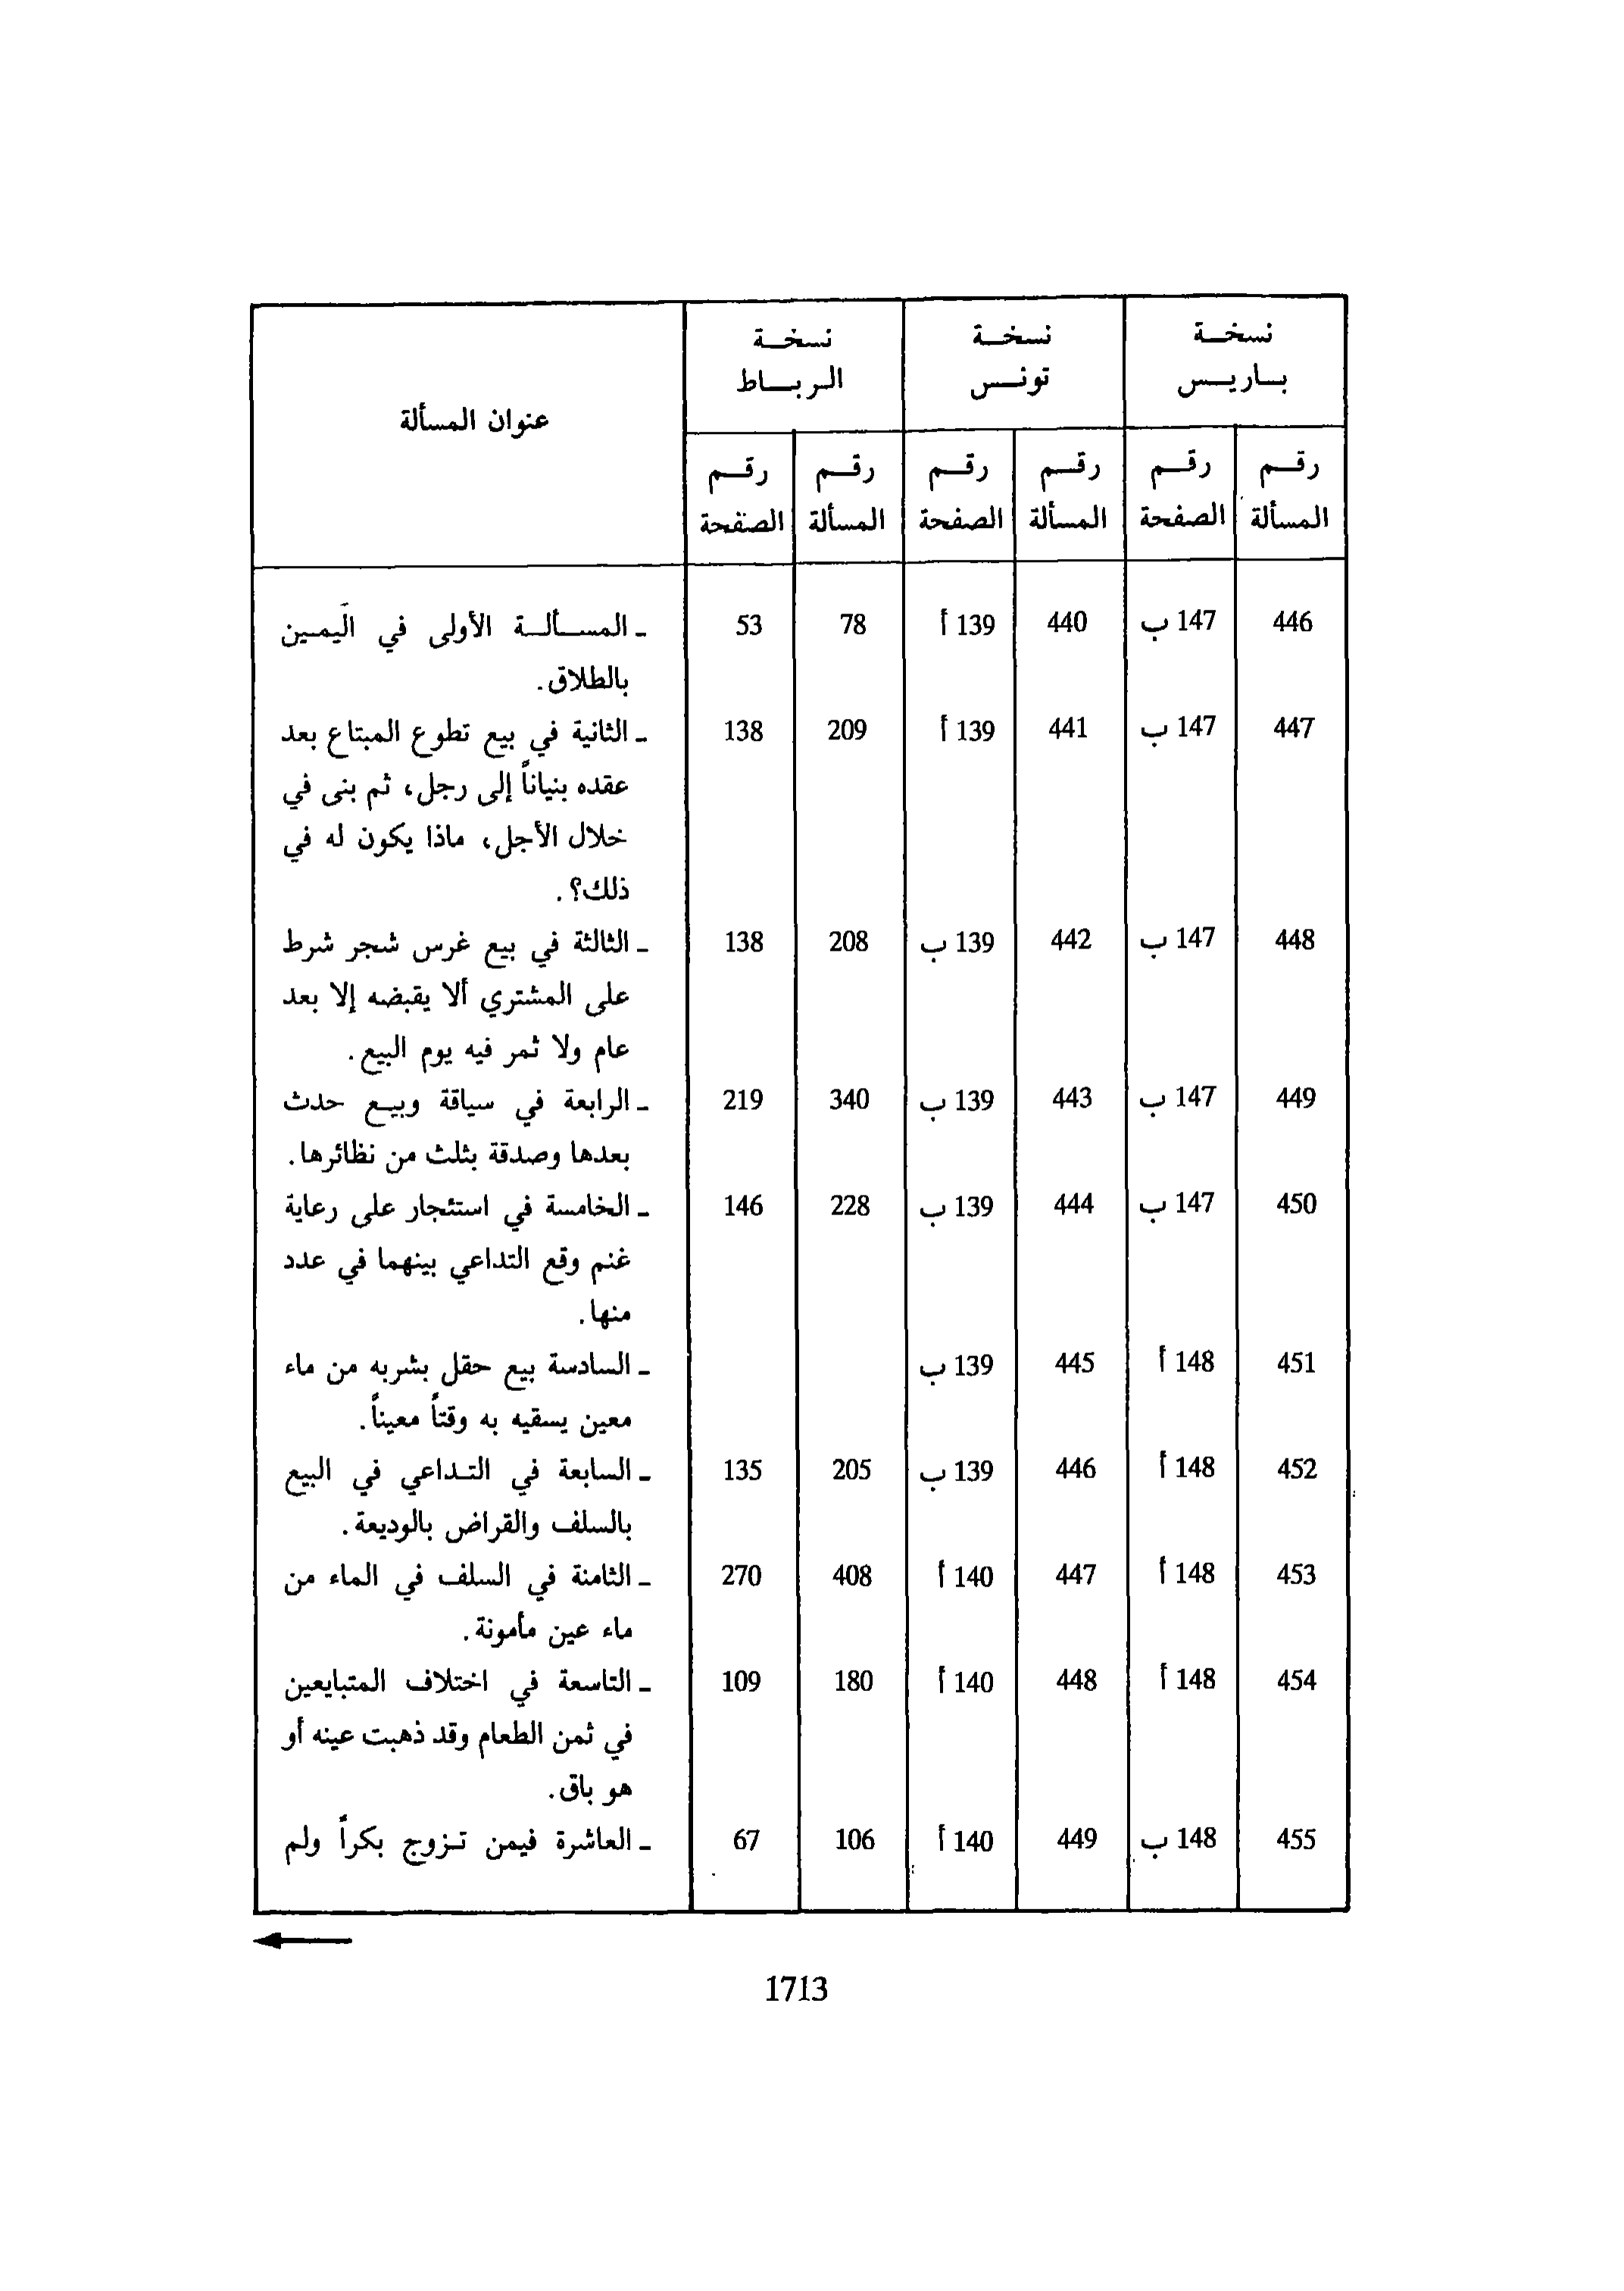 نسخة نسخة نسخة
باريس تونس الرباط
عنوان المسألة
رقم رقم رقم رقم رقم رقم
المسألة الصفحة المسألة الصفحة المسألة الصفحة
446 147 ب 440 139 أ 78 53 - المسألة الأولى في اليمين
بالطلاق.
447 147 ب 441 139 أ 209 138 - الثانية في بيع تطوع المبتاع بعد
عقده بنياناً إلى رجل، ثم بنى في
خلال الأجل، ماذا يكون له في
ذلك؟.
448 147 ب 442 139 ب 208 138 - الثالثة في بيع غرس شجر شرط
على المشتري ألا يقبضه إلا بعد
عام ولا ثمر فيه يوم البيع.
449 147 ب 443 139 ب 340 219 - الرابعة في سياقة وبيع حدث
بعدها وصدقة بثلث من نظائرها.
450 147 ب 444 139 ب 228 146 - الخامسة في استئجار على رعاية
غنم وقع التداعي بينهما في عدد
منها.
451 148 أ 445 139 ب - السادسة بيع حقل بشربه من ماء
معين يسقيه به وقتاً معيناً.
452 148 أ 446 139 ب 205 135 - السابعة في التداعي في البيع
بالسلف والقراض بالوديعة.
453 148 أ 447 140 أ 408 270 - الثامنة في السلف في الماء من
ماء عين مأمونة.
454 148 أ 448 140 أ 180 109 - التاسعة في اختلاف المتبايعين
في ثمن الطعام وقد ذهبت عينه أو
هو باق.
455 148 ب 449 140 أ 106 67 - العاشرة فيمن تزوج بكراً ولم
1713